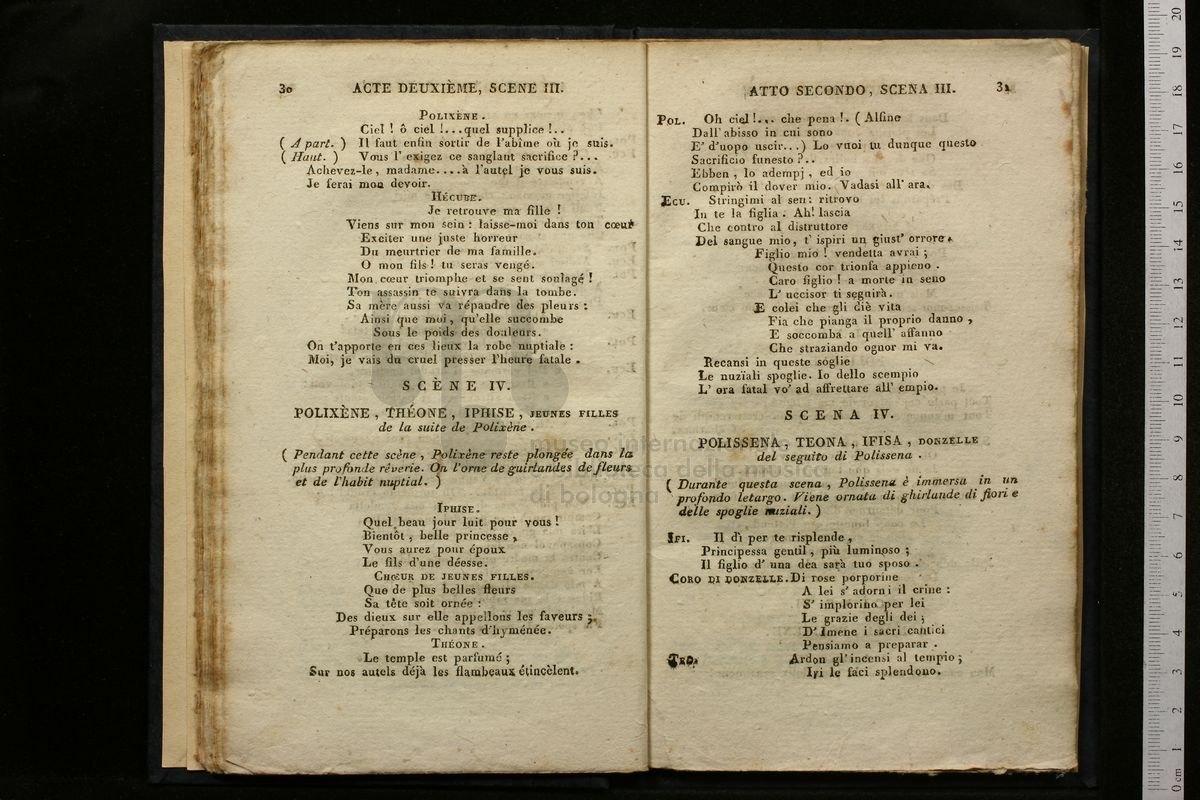 30 ACTE DEUXIÈME, SCENE III.
POLIXÈNE.
Ciel ! ô ciel !...quel supplice !..
( A part. ) Il faut enfin sortir de l'abîme où je suis.
( Haut. ) Vous l'exigez ce sanglant sacrifice ?...
Achevez-le, madame....à l'autel je vous suis.
Je ferai mon devoir.
HÉCUBE.
Je retrouve ma fille !
Viens sur mon sein : laisse-moi dans ton cœur
Exciter une juste horreur
Du meurtrier de ma famille.
O mon fils ! tu seras vengé.
Mon cœur triomphe et se sent soulagé !
Ton assassin te suivra dans la tombe.
Sa mère aussi va répandre des pleurs :
Ainsi que moi, qu'elle succombe
Sous le poids des douleurs.
On t'apporte en ces lieux la robe nuptiale :
Moi, je vais du cruel presser l'heure fatale.
SCÈNE IV.
POLIXÈNE, THÉONE, IPHISE, JEUNES FILLES
de la suite de Polixène.
( Pendant cette scène, Polixène reste plongée dans la
plus profonde rêverie. On l'orne de guirlandes de fleurs
et de l'habit nuptial. )
IPHISE.
Quel beau jour luit pour vous !
Bientôt, belle princesse,
Vous aurez pour époux
Le fils d'une déesse.
CHŒUR DE JEUNES FILLES.
Que de plus belles fleurs
Sa tête soit ornée :
Des dieux sur elle appellons les faveurs ;
Préparons les chants d'hyménée.
THÉONE.
Le temple est parfumé ;
Sur nos autels déjà les flambeaux étincèlent.
ATTO SECONDO, SCENA III. 31
POL. Oh ciel !... che pena !. ( Alfine
Dall' abisso in cui sono
E' d'uopo uscir...) Lo vuoi tu dunque questo
Sacrificio funesto ?..
Ebben, lo adempj, ed io
Compirò il dover mio. Vadasi all' ara.
ECU. Stringimi al sen: ritrovo
In te la figlia. Ah! lascia
Che contro al distruttore
Del sangue mio, t' ispiri un giust' orrore.
Figlio mio ! vendetta avrai ;
Questo cor trionfa appieno.
Caro figlio ! a morte in seno
L' uccisor ti seguirà.
E colei che gli diè vita
Fia che pianga il proprio danno,
E soccomba a quell' affanno
Che straziando ognor mi va.
Recansi in queste soglie
Le nuziali spoglie. Io dello scempio
L' ora fatal vo' ad affrettare all' empio.
SCENA IV.
POLISSENA, TEONA, IFISA, DONZELLE
del seguito di Polissena.
( Durante questa scena, Polissena è immersa in un
profondo letargo. Viene ornata di ghirlande di fiori e
delle spoglie nuziali. )
IFI. Il dì per te risplende,
Principessa gentil, più luminoso ;
Il figlio d' una dea sarà tuo sposo.
CORO DI DONZELLE. Di rose porporine
A lei s' adorni il crine :
S' implorino per lei
Le grazie degli dei ;
D' Imene i sacri cantici
Pensiamo a preparar.
TEO. Ardon gl' incensi al tempio ;
Ivi le faci splendono.
museo internazionale
e biblioteca della musica
di bologna